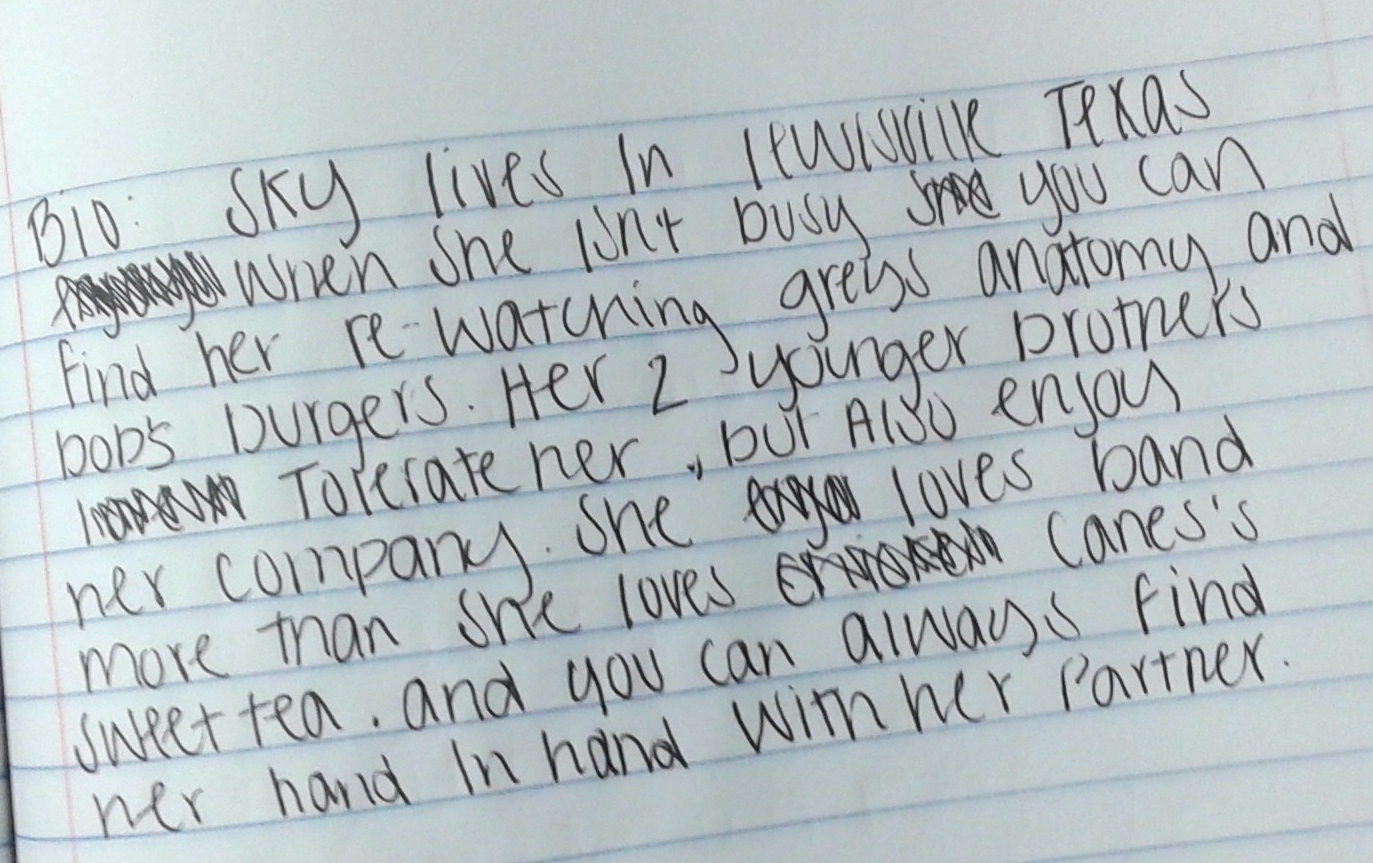 Bio: Sky lives in lewisville Texas
when she isn't busy you can
find her re-watching greys anatomy and
bob's burgers. Her 2 younger brothers
Tolerate her, but Also enjoy
her company. She loves band
more than she loves Canes's
sweet tea. and you can always find
her hand in hand with her Partner.